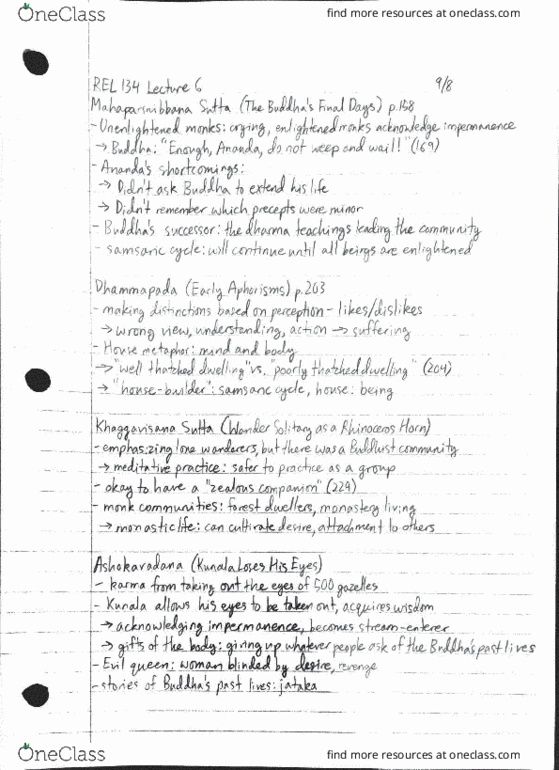 OneClass
find more resources at oneclass.com
REL 134 Lecture 6 9/8
Mahaparinibbana Sutta (The Buddha's Final Days) p.158
- Unenlightened monks: crying, enlightened monks acknowledge impermanence
→ Buddha: "Enough, Ananda, do not weep and wail!" (169)
- Ananda's shortcomings:
→ Didn't ask Buddha to extend his life
→ Didn't remember which precepts were minor
- Buddha's successor: the dharma teachings leading the community
- samsaric cycle: will continue until all beings are enlightened
Dhammapada (Early Aphorisms) p.203
- making distinctions based on perception - likes/dislikes
→ wrong view, understanding, action → suffering
- House metaphor: mind and body
→ "well thatched dwelling" vs. "poorly thatched dwelling" (204)
→ "house-builder": samsaric cycle, house: being
Khaggavisana Sutta (Wander Solitary as a Rhinoceros Horn)
- emphasizing lone wanderers, but there was a Buddhist community
→ meditative practice: safer to practice as a group
- okay to have a "zealous companion" (229)
- monk communities: forest dwellers, monastery living
→ monastic life: can cultivate desire, attachment to others
Ashokavadana (Kunala Loses His Eyes)
- karma from taking out the eyes of 500 gazelles
- Kunala allows his eyes to be taken out, acquires wisdom
→ acknowledging impermanence, becomes stream-enterer
→ gifts of the body: giving up whatever people ask of the Buddha's past lives
- Evil queen: woman blinded by desire, revenge
- stories of Buddha's past lives: jataka
OneClass
find more resources at oneclass.com